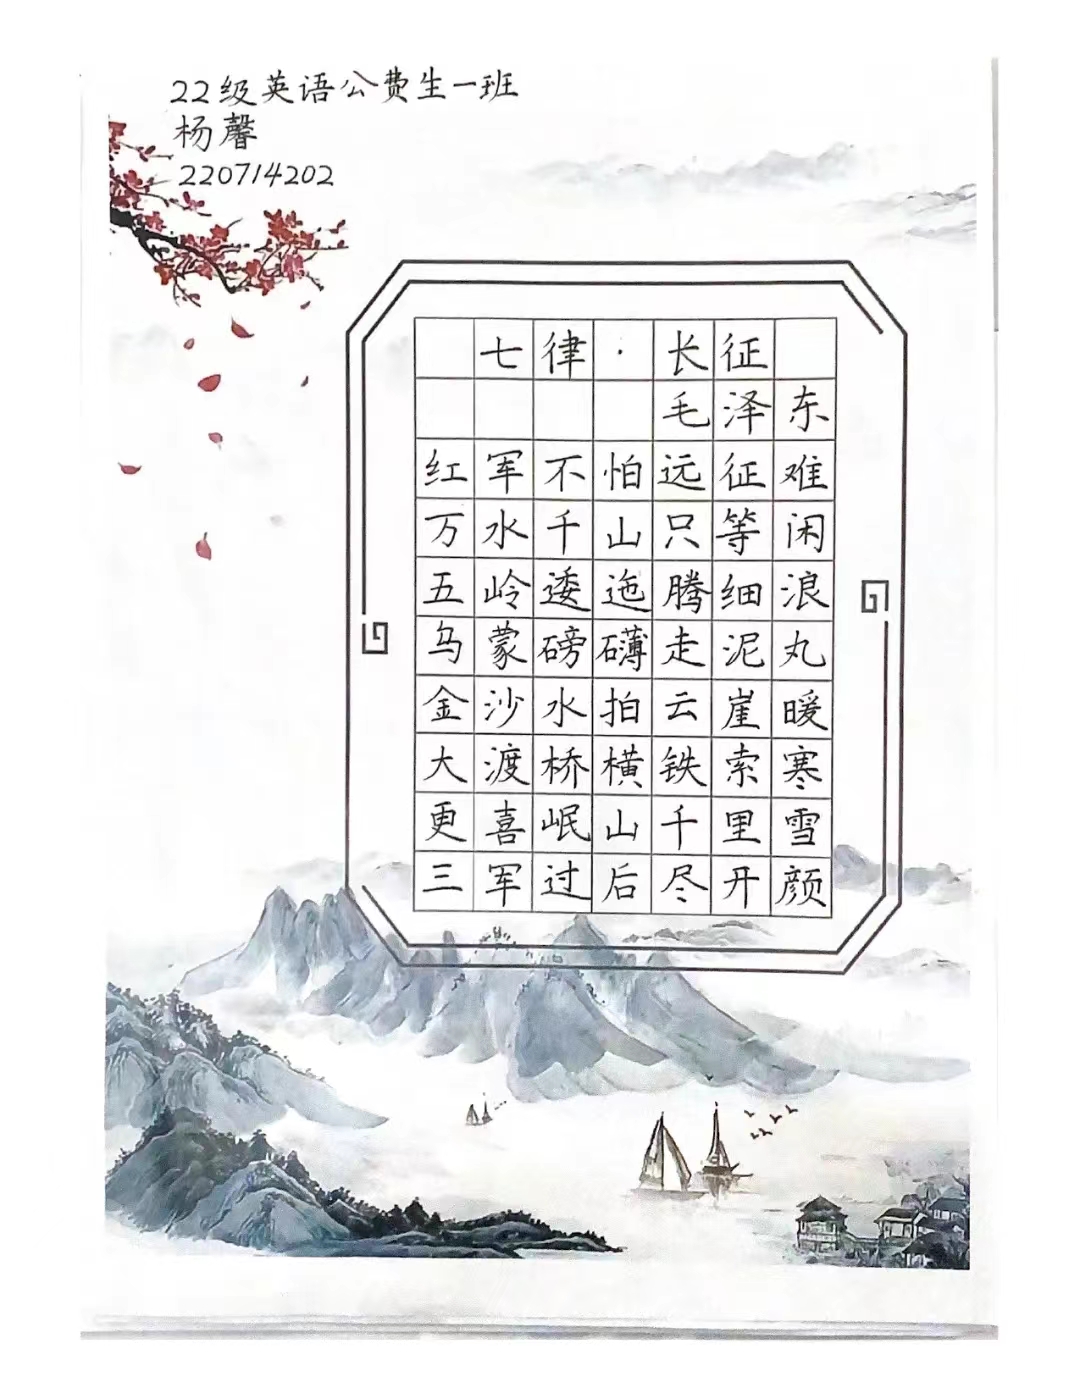 22级英语公费生一班
杨馨
220714202
七律·长征
毛泽东
红军不怕远征难
万水千山只等闲
五岭逶迤腾细浪
乌蒙磅礴走泥丸
金沙水拍云崖暖
大渡桥横铁索寒
更喜岷山千里雪
三军过后尽开颜